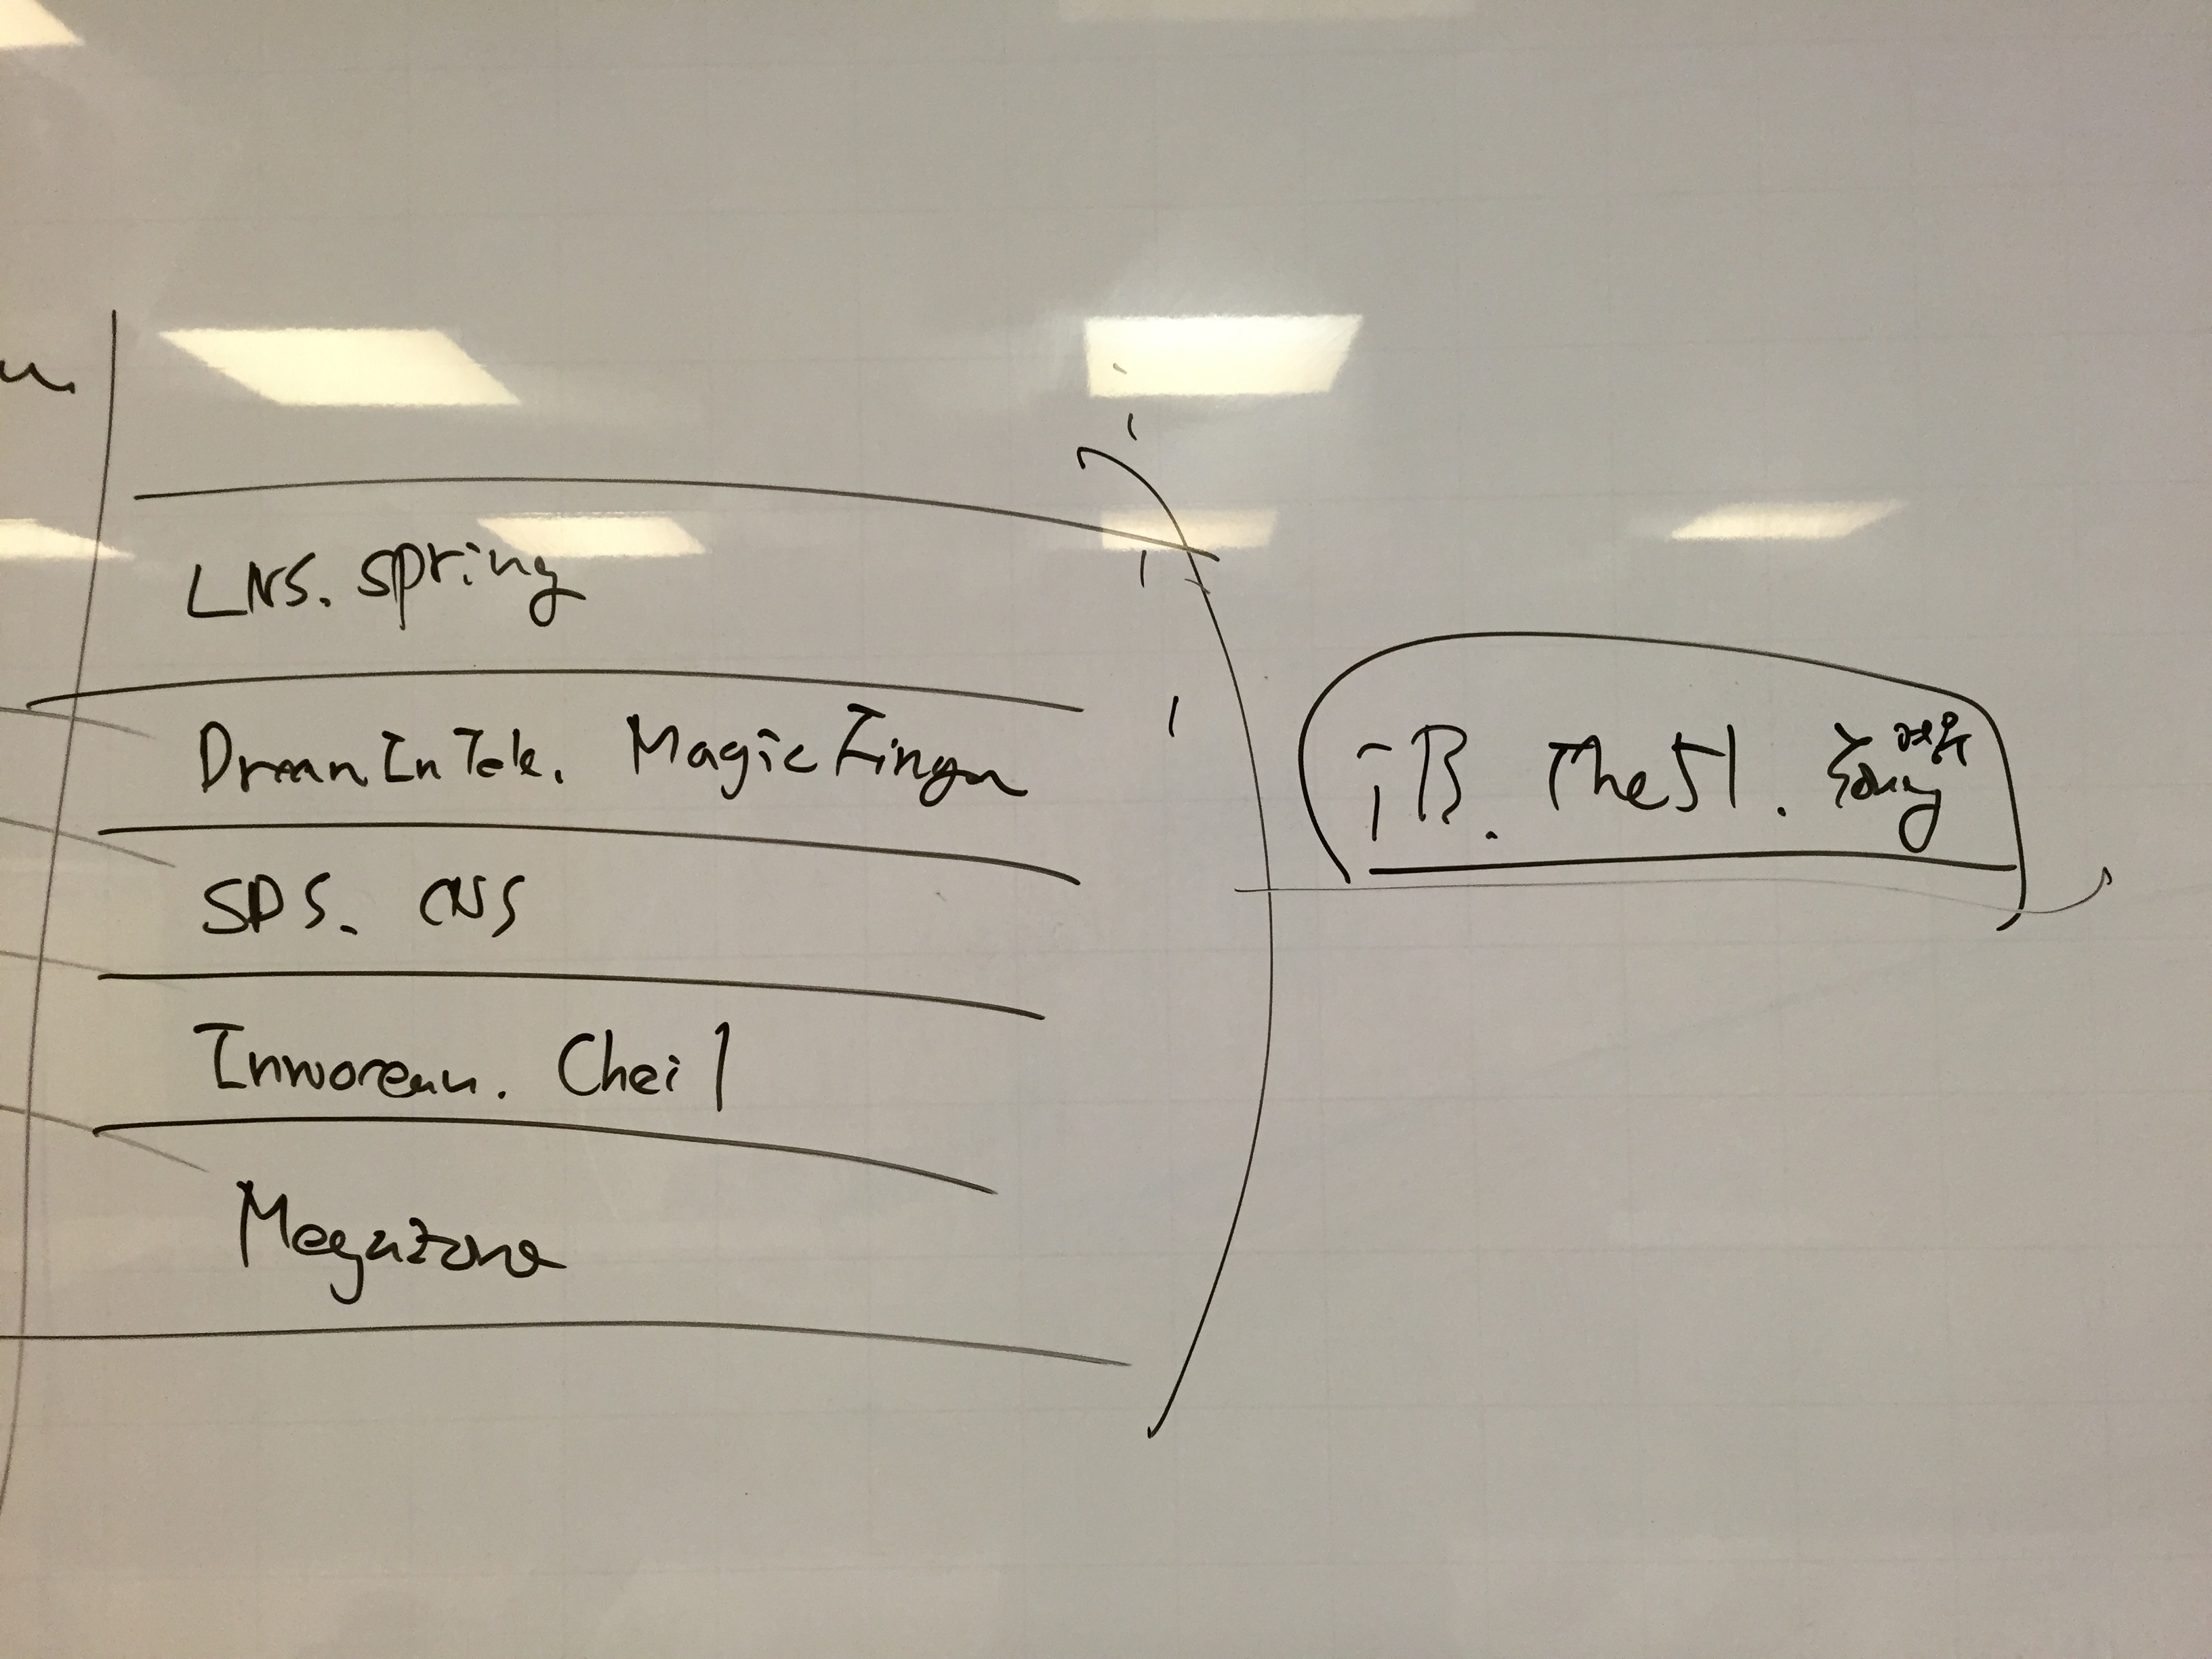 LNS. Spring
DreamInTek. Magic Finger
SDS. CNS
Innorean. Cheil
Megazone
iB. The51.